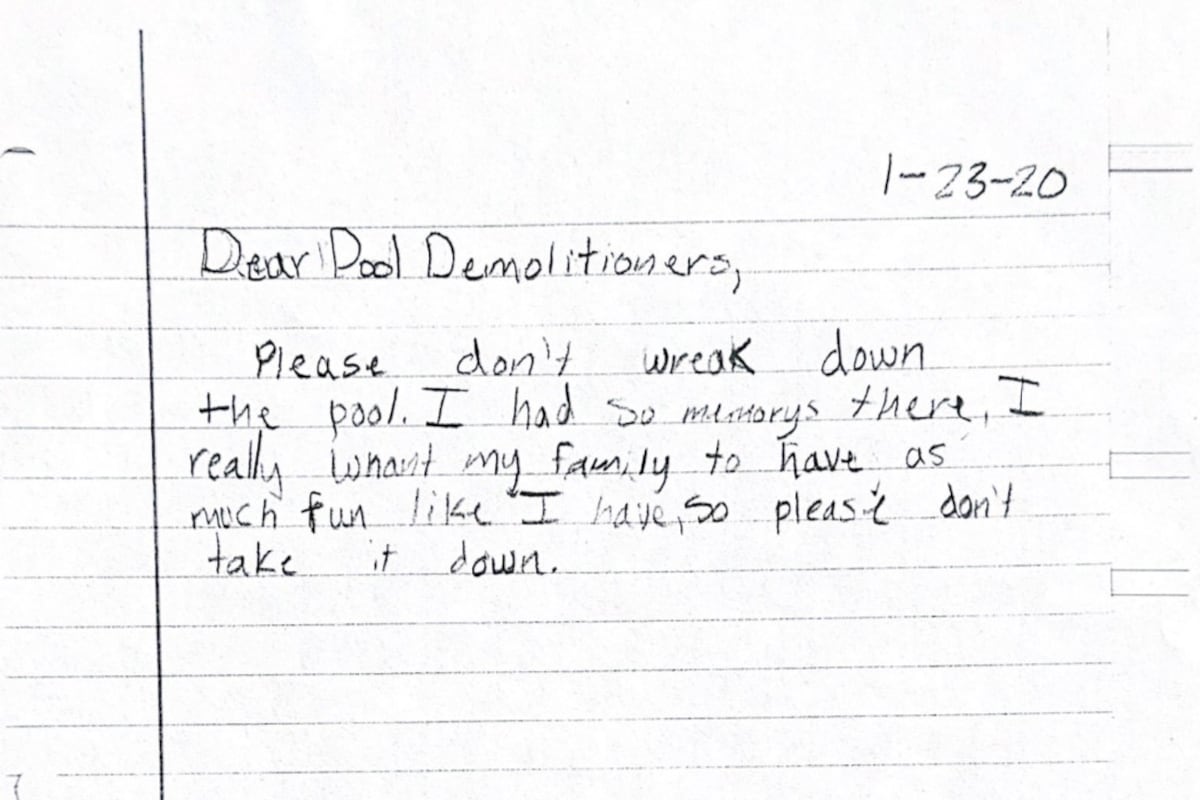 1-23-20
Dear Pool Demolitioners,
Please don't wreak down
the pool. I had so memorys there, I
really whant my family to have as
much fun like I have, so please don't
take it down.